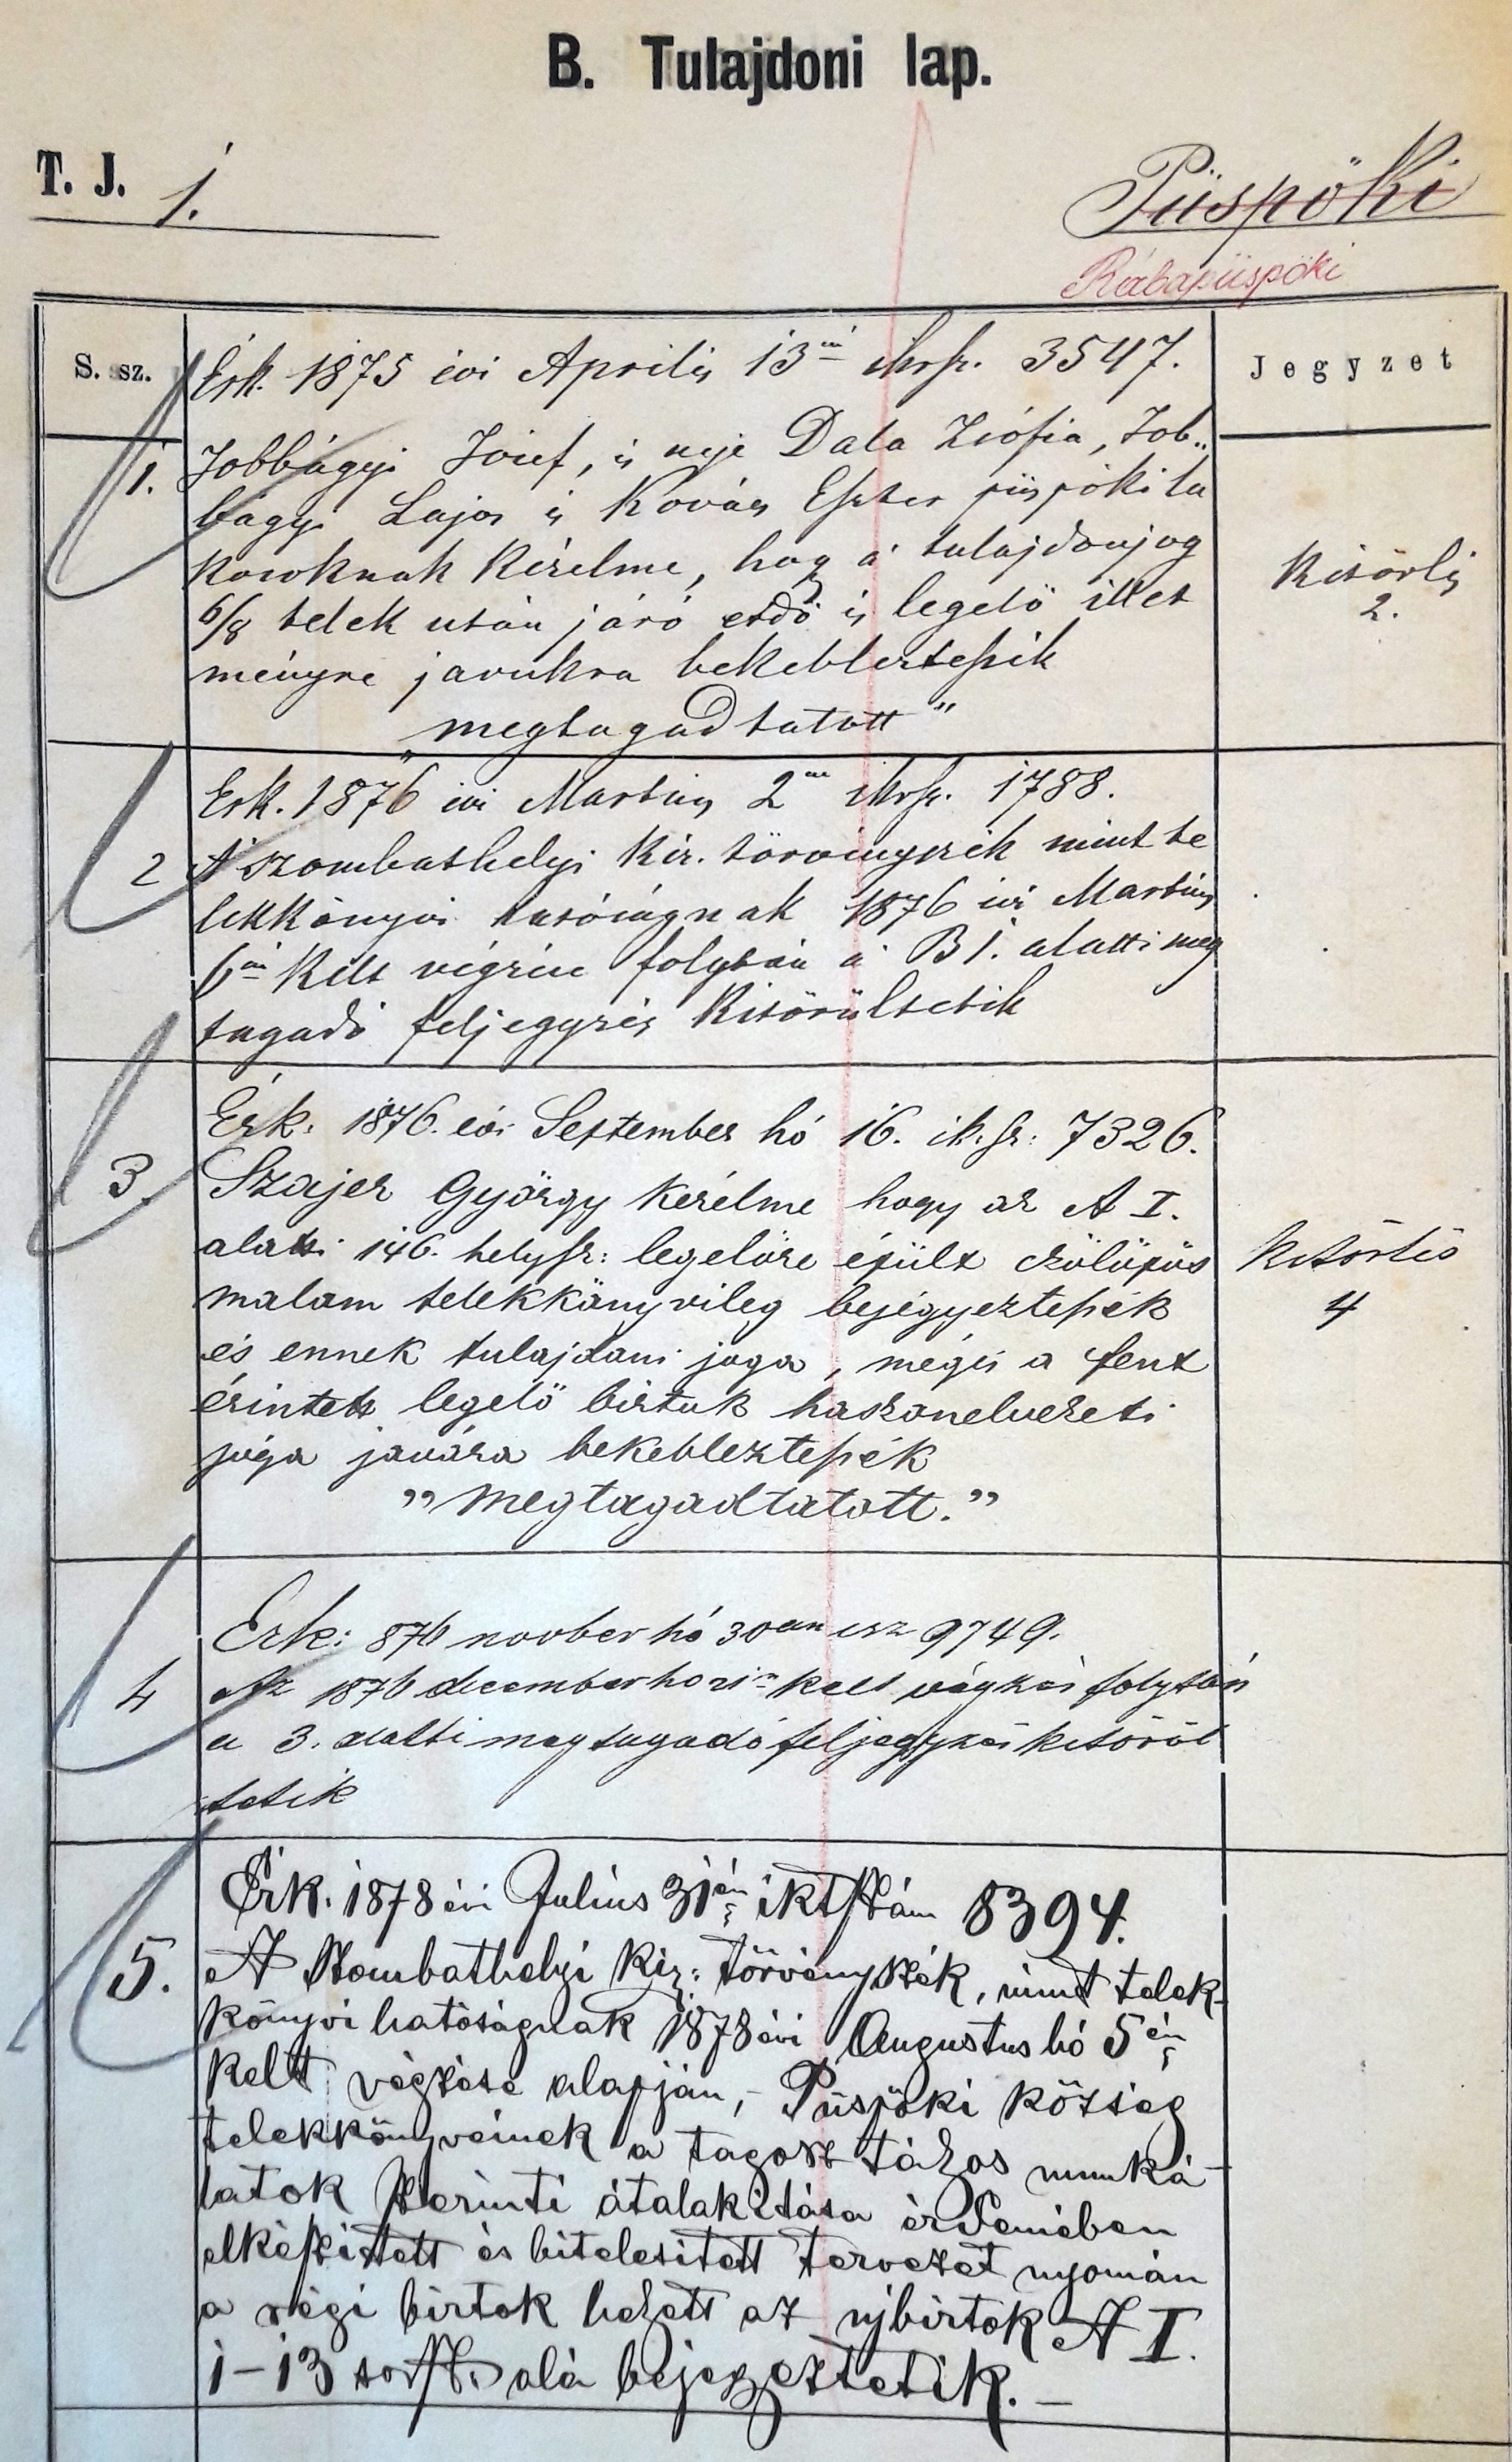 B. Tulajdoni lap.
T. J. 1.
Püspöki
Rábapüspöki
S. sz.
Jegyzet
Érk. 1875 évi Aprilis 13án iktsz. 3547.
1. Jobbágyi József, és neje Data Zsófia, Job„
bágyi Lajos és Kovács Eszter püspöki la
kosoknak kérelme, hogy a' tulajdonjog
6/8 telek után járó erdő és legelő illet
ményre javukra bekebleztessék
„megtagadtatott"
Kitörlés
2.
Érk. 1876 évi Martius 2án iktsz. 1788.
2 A' szombathelyi kir. törvényszék mint te
lekkönyvi hatóságnak 1876 évi Martius
6án kelt végzése folytán a' B 1. alatti meg
tagadó feljegyzés kitöröltetik
Érk. 1876. évi September hó 16. ik.sz: 7326.
3. Szajer György kérelme hogy az A I.
alatti 146. helysz: legelőre épült czölöpös
malom telekkönyvileg bejegyeztessék
és ennek tulajdoni joga, mégis a fent
érintett legelő birtok haszonelvezeti
joga javára bekebleztessék
„megtagadtatott."
Kitörlés
4
Erk: 876 novber hó 30án isz 9749.
4 Az 1876 december hó kelt végzés folytán
a 3. alatti megtagadó feljegyzés kitöröl
tetik
Érk. 1878 évi Julius 31én iktszám 8394.
5. A Szombathelyi kir: törvényszék, mint telek-
könyvi hatóságnak 1878 évi Augustus hó 5én
kelt végzése alapján, - Püspöki község
telekkönyveinek a tagosztályos munká-
latok szerinti átalakitása érdemében
elkészitett és hitelesitett tervezet nyomán
a régi birtok helyett az ujbirtok A I.
1-13 sorsz. alá bejegyeztetik. —